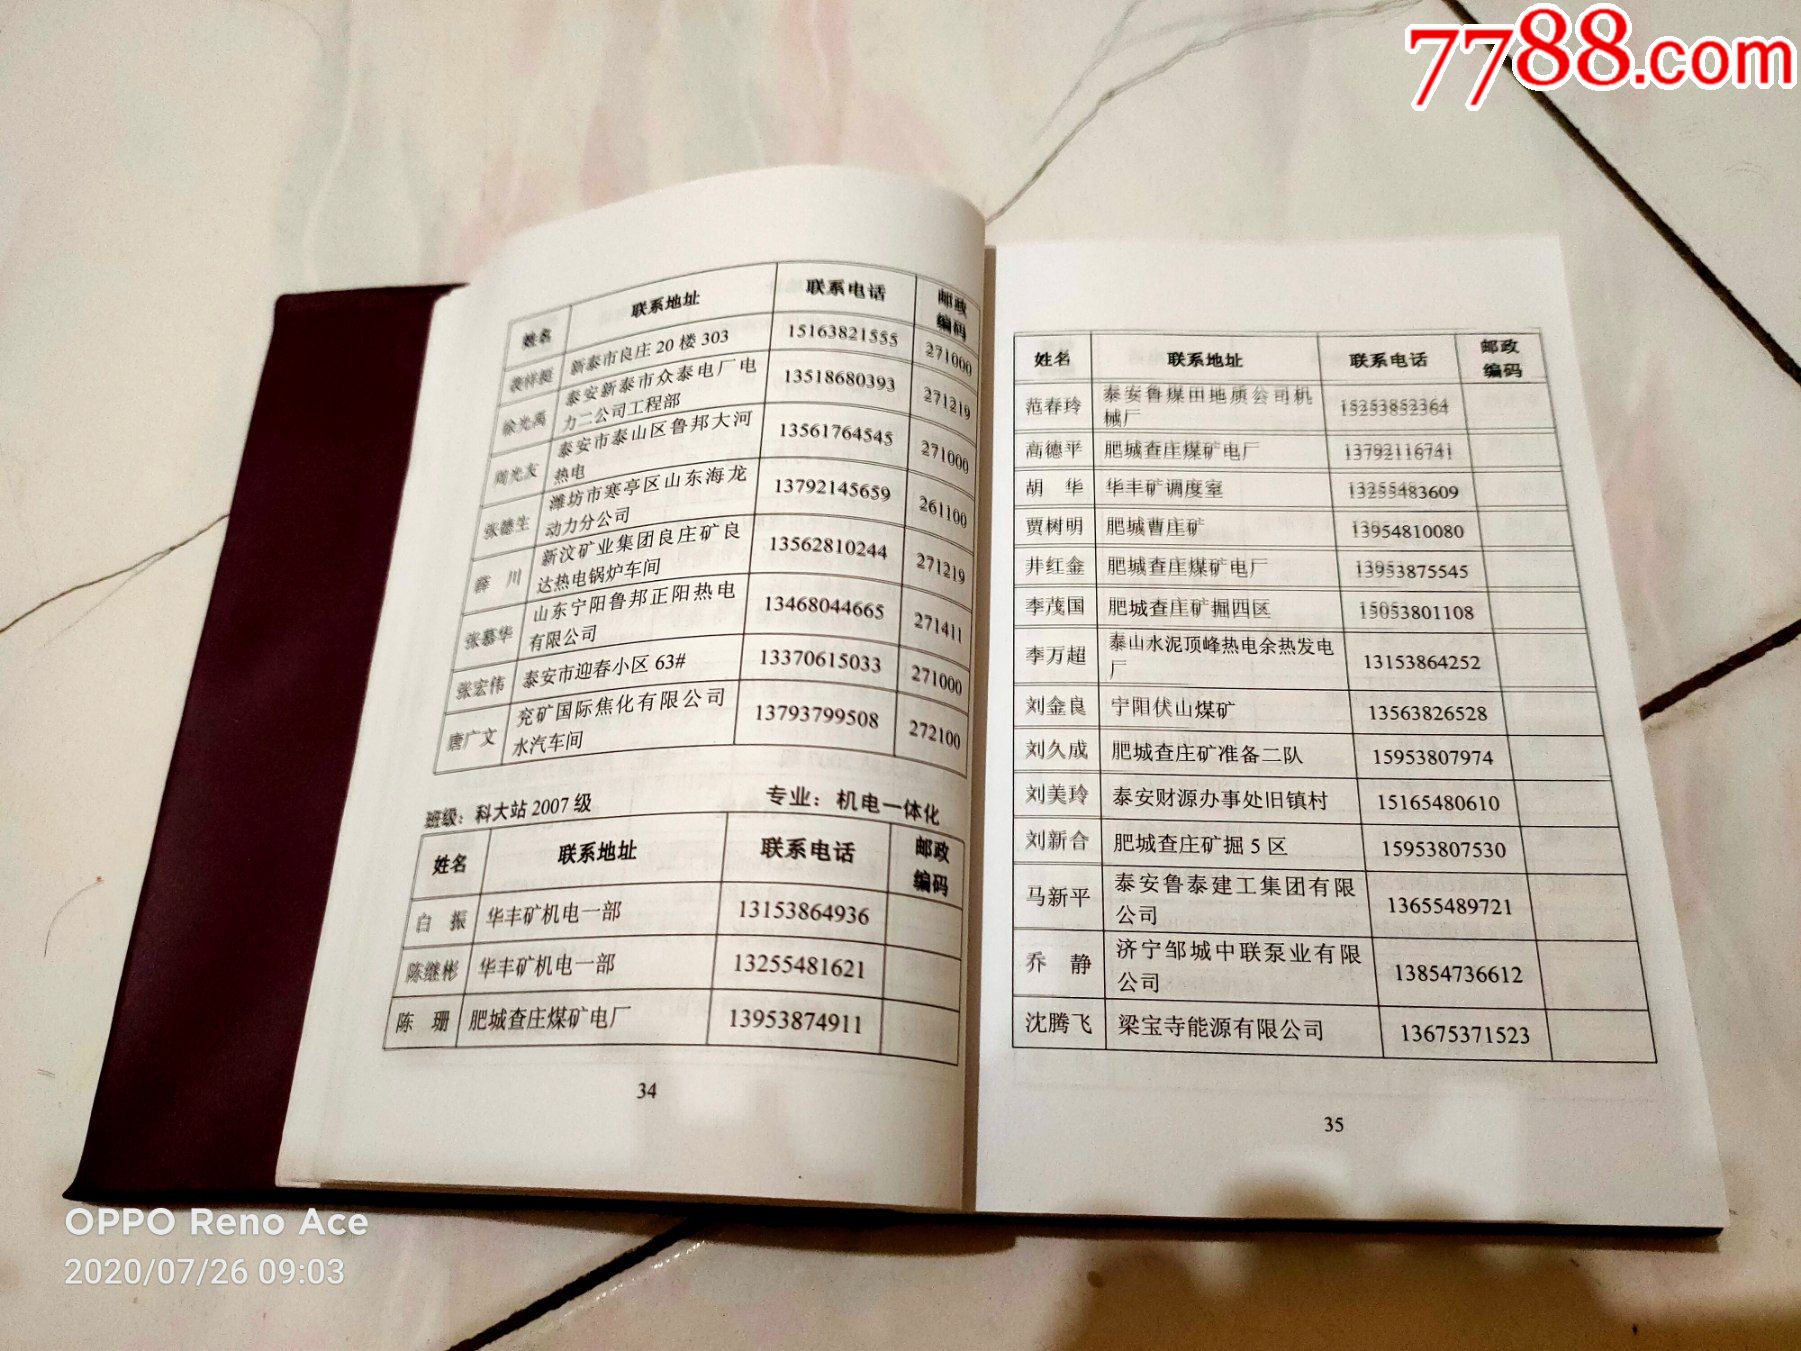 7788.com
姓名 联系地址 联系电话 邮政
编码
裴祥挺 新泰市良庄 20 楼 303 15163821555 271000
徐光禹 泰安新泰市众泰电厂电
力二公司工程部 13518680393 271219
周光友 泰安市泰山区鲁邦大河
热电 13561764545 271000
张德生 潍坊市寒亭区山东海龙
动力分公司 13792145659 261100
川 新汶矿业集团良庄矿良
达热电锅炉车间 13562810244 271219
张慕华 山东宁阳鲁邦正阳热电
有限公司 13468044665 271411
张宏伟 泰安市迎春小区 63# 13370615033 271000
唐广文 兖矿国际焦化有限公司
水汽车间 13793799508 272100
班级：科大站 2007 级 专业：机电一体化
姓名 联系地址 联系电话 邮政
编码
白 振 华丰矿机电一部 13153864936
陈继彬 华丰矿机电一部 13255481621
陈 珊 肥城查庄煤矿电厂 13953874911
34
姓名 联系地址 联系电话 邮政
编码
范春玲 泰安鲁煤田地质公司机
械厂 15253852364
高德平 肥城查庄煤矿电厂 13792116741
胡 华 华丰矿调度室 13255483609
贾树明 肥城曹庄矿 13954810080
井红金 肥城查庄煤矿电厂 13953875545
李茂国 肥城查庄矿掘四区 15053801108
李万超 泰山水泥顶峰热电余热发电
厂 13153864252
刘金良 宁阳伏山煤矿 13563826528
刘久成 肥城查庄矿准备二队 15953807974
刘美玲 泰安财源办事处旧镇村 15165480610
刘新合 肥城查庄矿掘 5 区 15953807530
马新平 泰安鲁泰建工集团有限
公司 13655489721
乔 静 济宁邹城中联泵业有限
公司 13854736612
沈腾飞 梁宝寺能源有限公司 13675371523
35
OPPO Reno Ace
2020/07/26 09:03